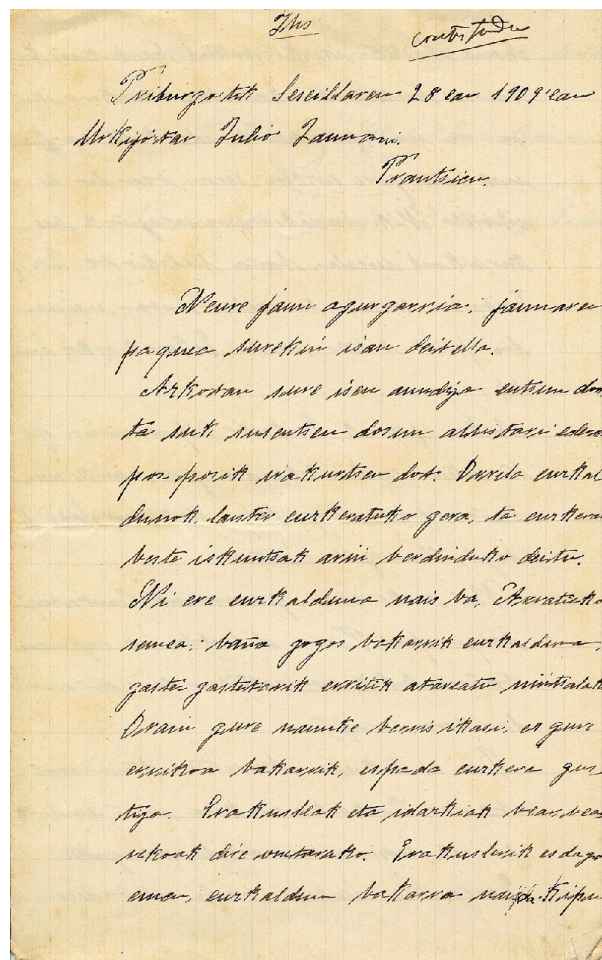 Jhs
contestada
Friburgotik Seseillaren 28 ean 1909 ean
Urkijotar Julio Jaunari.
Prantsien.
Neure jaun agurgarria; jaunaren
paquea surekin isan deitella.
Arkotan sure isen aundija entsun dot
ta suk susentsen dosun aldistari ederra
pos posik irakurtsen dot. Orrela euskal
dunok lantsen euskeratuko gera, ta euskera
beste iskuntsak arin berdinduko deitu.
Ni ere euskalduna nais ba, Arratiako
semea; baña gogos bakarrik euskalduna,
gaste gastetarik erritik ataratu nintsalako
Orain gure nauke berris ikasi, es gure
errikoa bakarrik, espada euskera gus
tija. Erakusleak eta idarkiak bear bea
rekoak dire onetarako. Erakuslerik es dago
emen, euskaldun bakarra nais